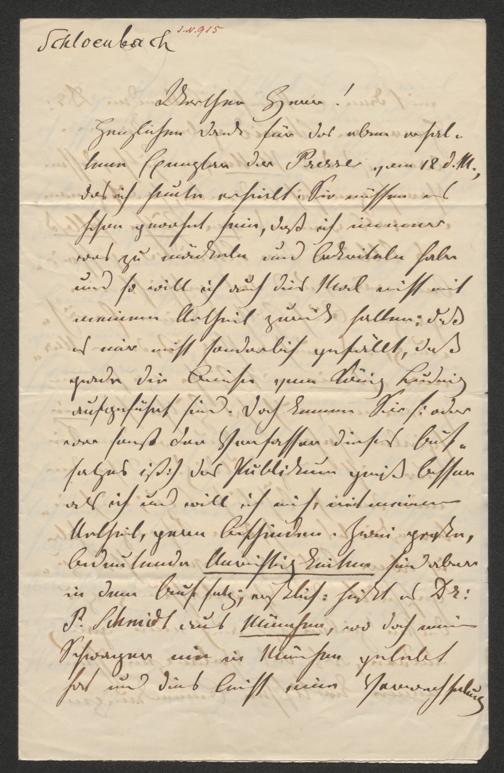 Schloenbach
J.N. 915
Werther Herr!
Herzlichen Dank für das eben erhal-
tene Exemplar der Presse vom 18 d. M.,
das ich heute erhielt. Sie müssen es
schon gewohnt sein, daß ich immer
was zu mäckeln und bekritteln habe
und so will ich auch dies Mal nicht mit
meinem Urtheil zurück halten: daß
es mir nicht sonderlich gefällt, daß
grade die Briefe vom König Ludwig
aufgeführt sind. Doch kennen Sie s: oder
wer sonst der Verfasser dieses Auf-
satzes ist s: das Publikum gewiß besser
als ich und will ich mich, mit meinem
Urtheil, gern bescheiden. Zwei große,
bedeutende Unrichtigkeiten sind aber
in dem Aufsatz; erstlich: heißt es Dr:
P. Schmidt aus München, wo doch mein
Schwager nie in München gelebt
hat und dies leicht eine Verwechslung